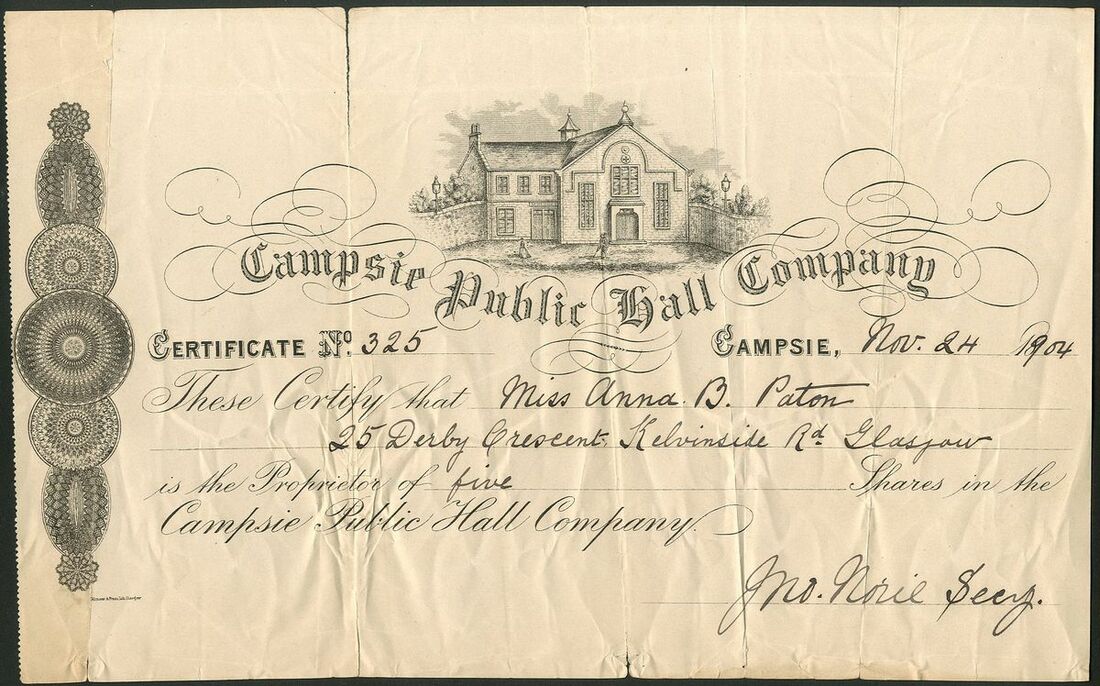 Campsie Public Hall Company
CERTIFICATE No. 325 CAMPSIE, Nov. 24 1904
These Certify that Miss Anna. B. Paton
25 Derby Crescent, Kelvinside Rd Glasgow
is the Proprietor of five Shares in the
Campsie Public Hall Company.
Jno. Norie Secy.